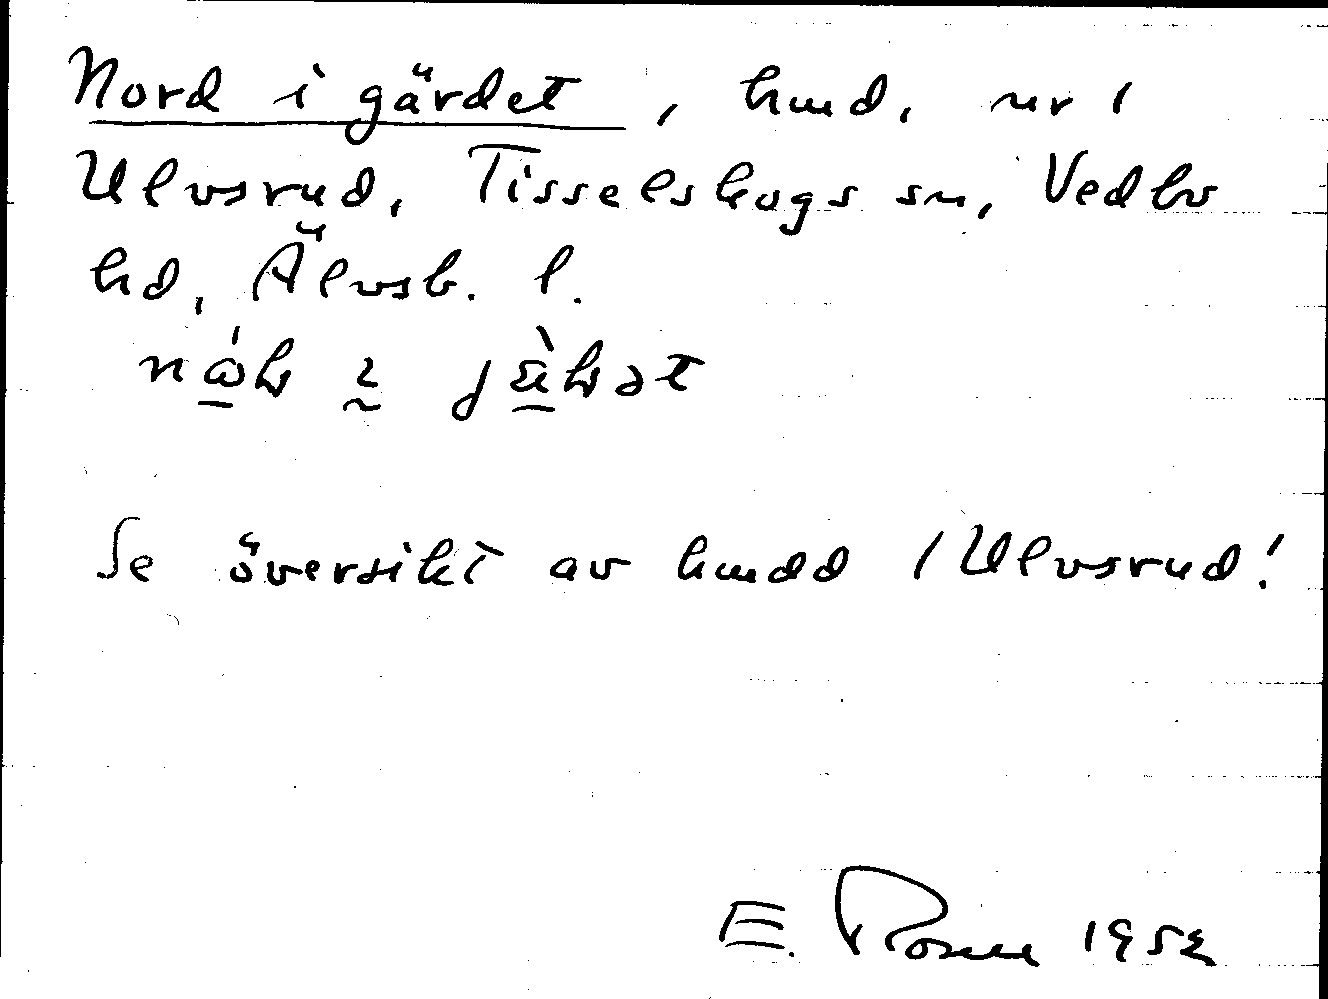 Nord i gärdet, hmd, ur 1
Ulvsrud, Tisselskogs sn, Vedbo
hd, Älvsb. l.
Se översikt av hmdd / Ulvsrud!
E. Rosell 1952